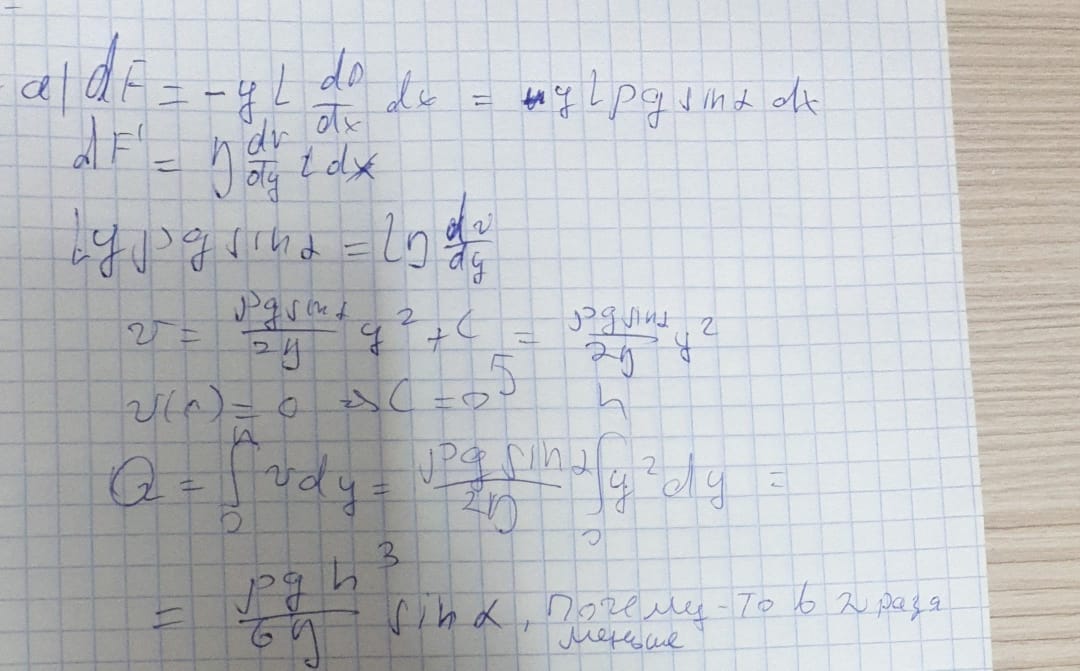 a) dF = -y L dp/dx dx = y L ρ g sin α dx
dF' = η dv/dy L dx
L y ρ g sin α = L η dv/dy
v = ρ g sin α / 2η y² + C = ρ g sin α / 2η y²
v(0) = 0 ⇒ C = 0
Q = ∫₀ʰ v dy = ρ g sin α / 2η ∫₀ʰ y² dy =
= ρ g h³ / 6η sin α, почему-то в 2 раза
меньше